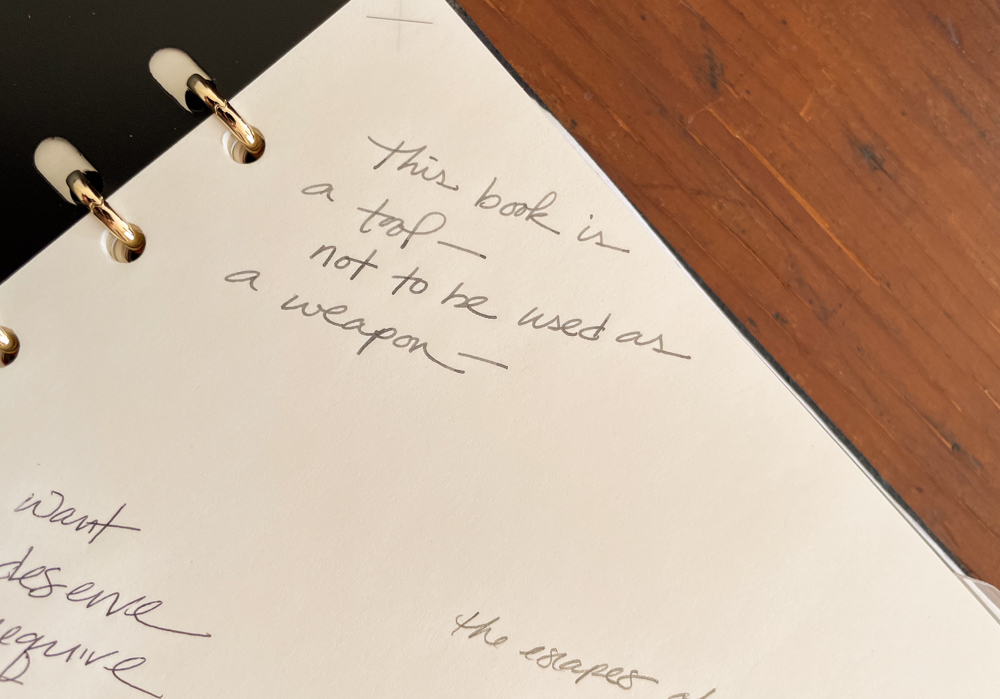 This book is
a tool —
not to be used as
a weapon —
want
deserve
require
the escapes of